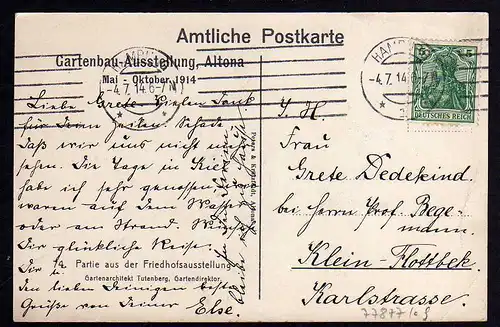 Amtliche Postkarte
Gartenbau-Ausstellung, Altona
Mai - Oktober 1914
HAMBURG
-4.7.14.6-7N
HAMBURG
-4.7.14.6-7N
5 5
DEUTSCHES REICH
Liebe Grete! Vielen Dank
für Deine Zeilen. Schade
daß wir uns nicht mehr
sehen. Die Tage in Kiel
habe ich sehr genossen,
waren auf dem Wasser
oder am Strand. Wünsche
Dir glückliche Reise.
Dir u.
den lieben Deinigen beste
Grüße von Deiner Else.
74. Partie aus der Friedhofsausstellung
Gartenarchitekt Tutenberg, Gartendirektor.
S. H.
Frau
Grete Dedekind.
bei Herrn Prof. Bege-
mann.
Klein-Flottbek.
Karlstrasse.
77877